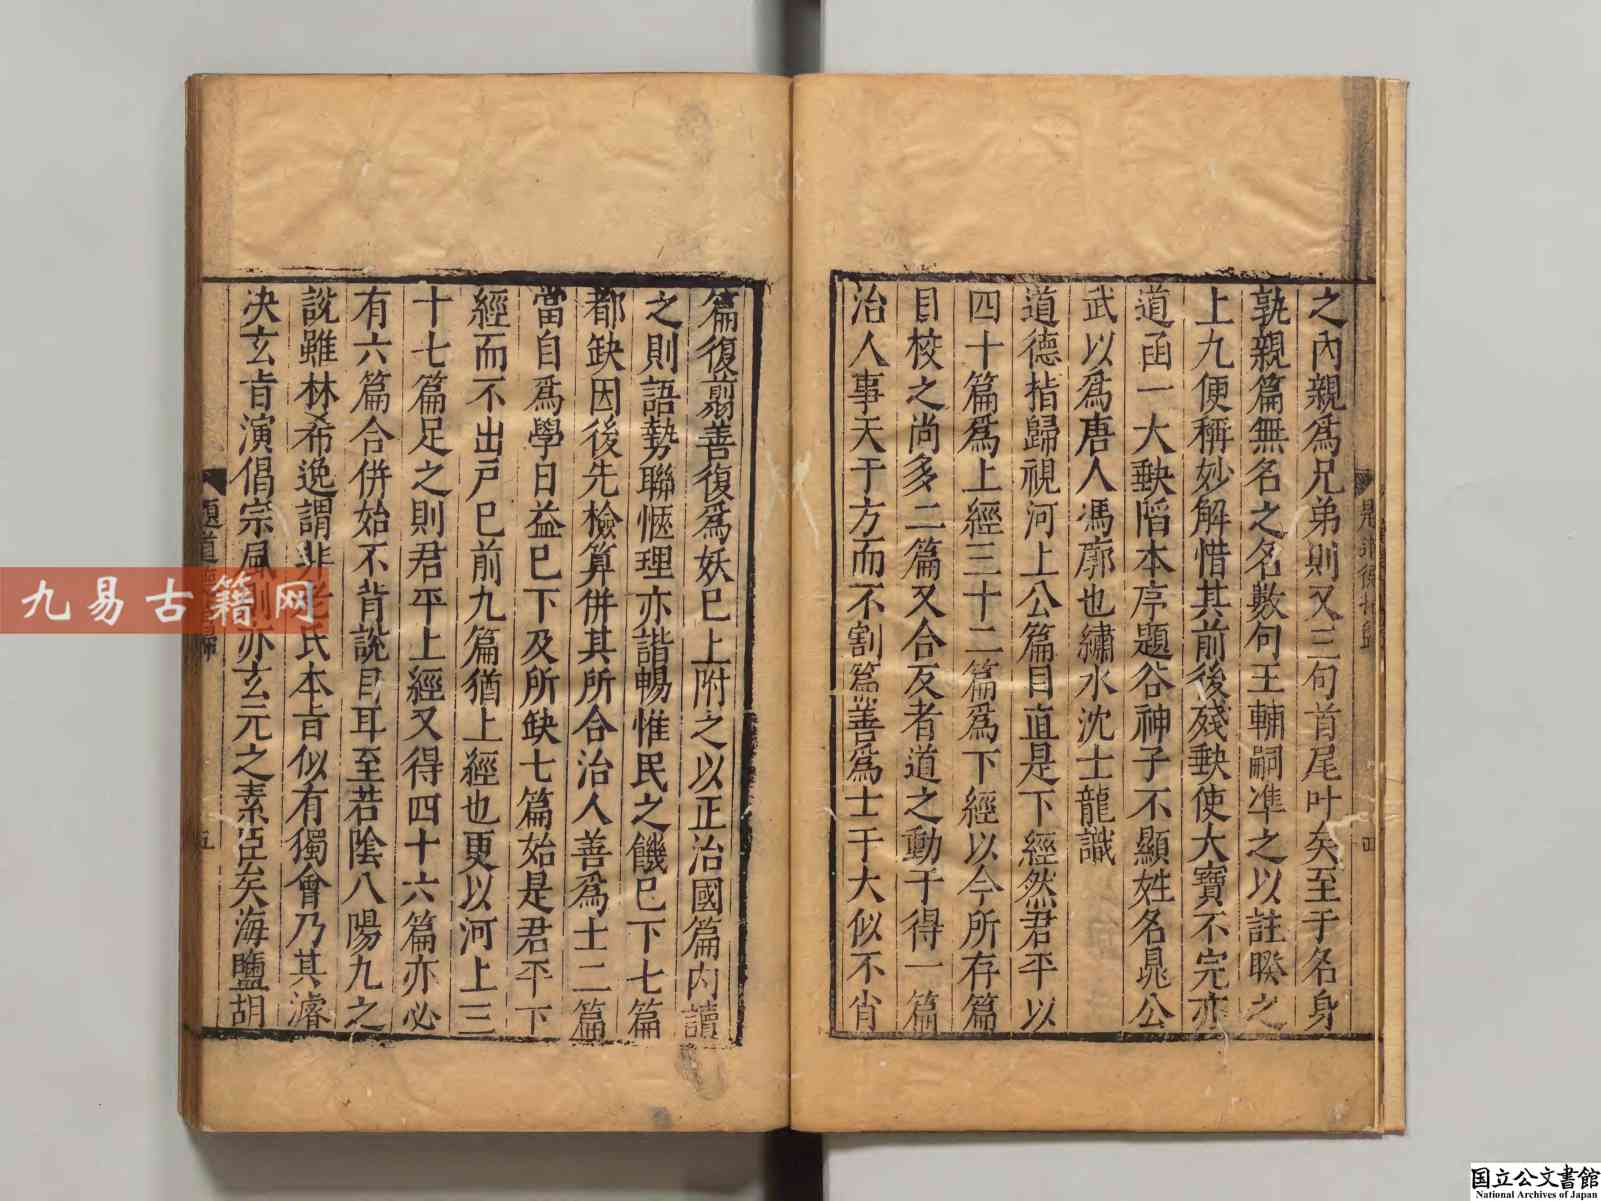 之內親爲兄弟則又三句首尾叶矣至于名身
孰親篇無名之名數句王輔嗣準之以註睽之
上九便稱妙解惜其前後殘缺使大寶不完亦
道函一大缺陷本序題谷神子不顯姓名晁公
武以爲唐人馮廓也繡水沈士龍識
道德指歸視河上公篇目直是下經然君平以
四十篇爲上經三十二篇爲下經以今所存篇
目校之尚多二篇又合反者道之動于得一篇
治人事天于方而不割篇善爲士于大似不肖
篇復翦善復爲妖已上附之以正治國篇內讀
之則語勢聯愜理亦諧暢惟民之饑已下七篇
都缺因後先檢算併其所合治人善爲士二篇
當自爲學日益已下及所缺七篇始是君平下
經而不出戶已前九篇猶上經也更以河上三
十七篇足之則君平上經又得四十六篇亦必
有六篇合併始不背說目耳至若陰八陽九之
說雖林希逸謂非老氏本旨似有獨會乃其濬
決玄旨演倡宗風則亦玄元之素臣矣海鹽胡
題道
五
四
九易古籍网
国立公文書館
National Archives of Japan